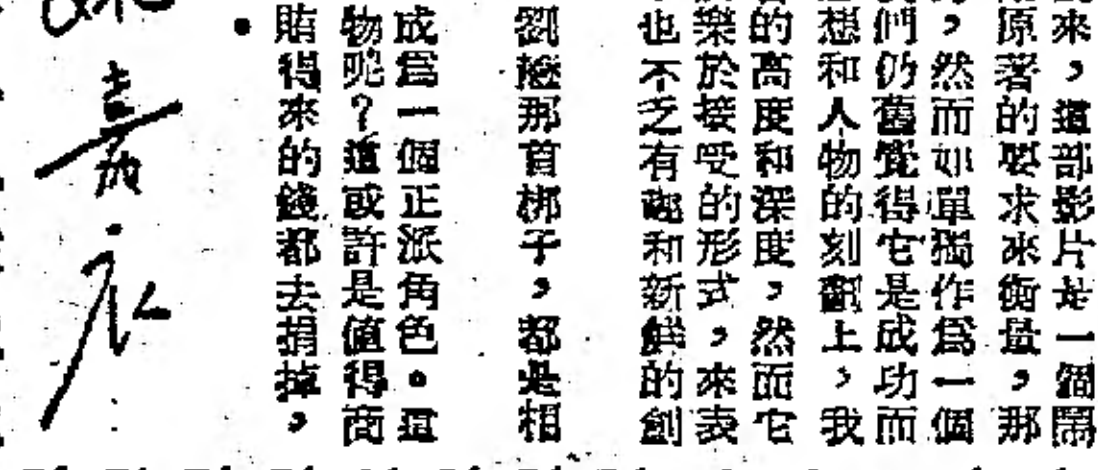 來，這部影片是一個鬧
原著的要求來衡量，那
，然而如單獨作爲一個
們仍舊覺得它是成功而
想和人物的刻劃上，我
的高度和深度，然而它
樂於接受的形式，來表
也不乏有趣和新鮮的創
劉撼那首梆子，都是相
成爲一個正派角色。這
物呢？這或許是值得商
賭得來的錢都去捐掉，
。
嘉